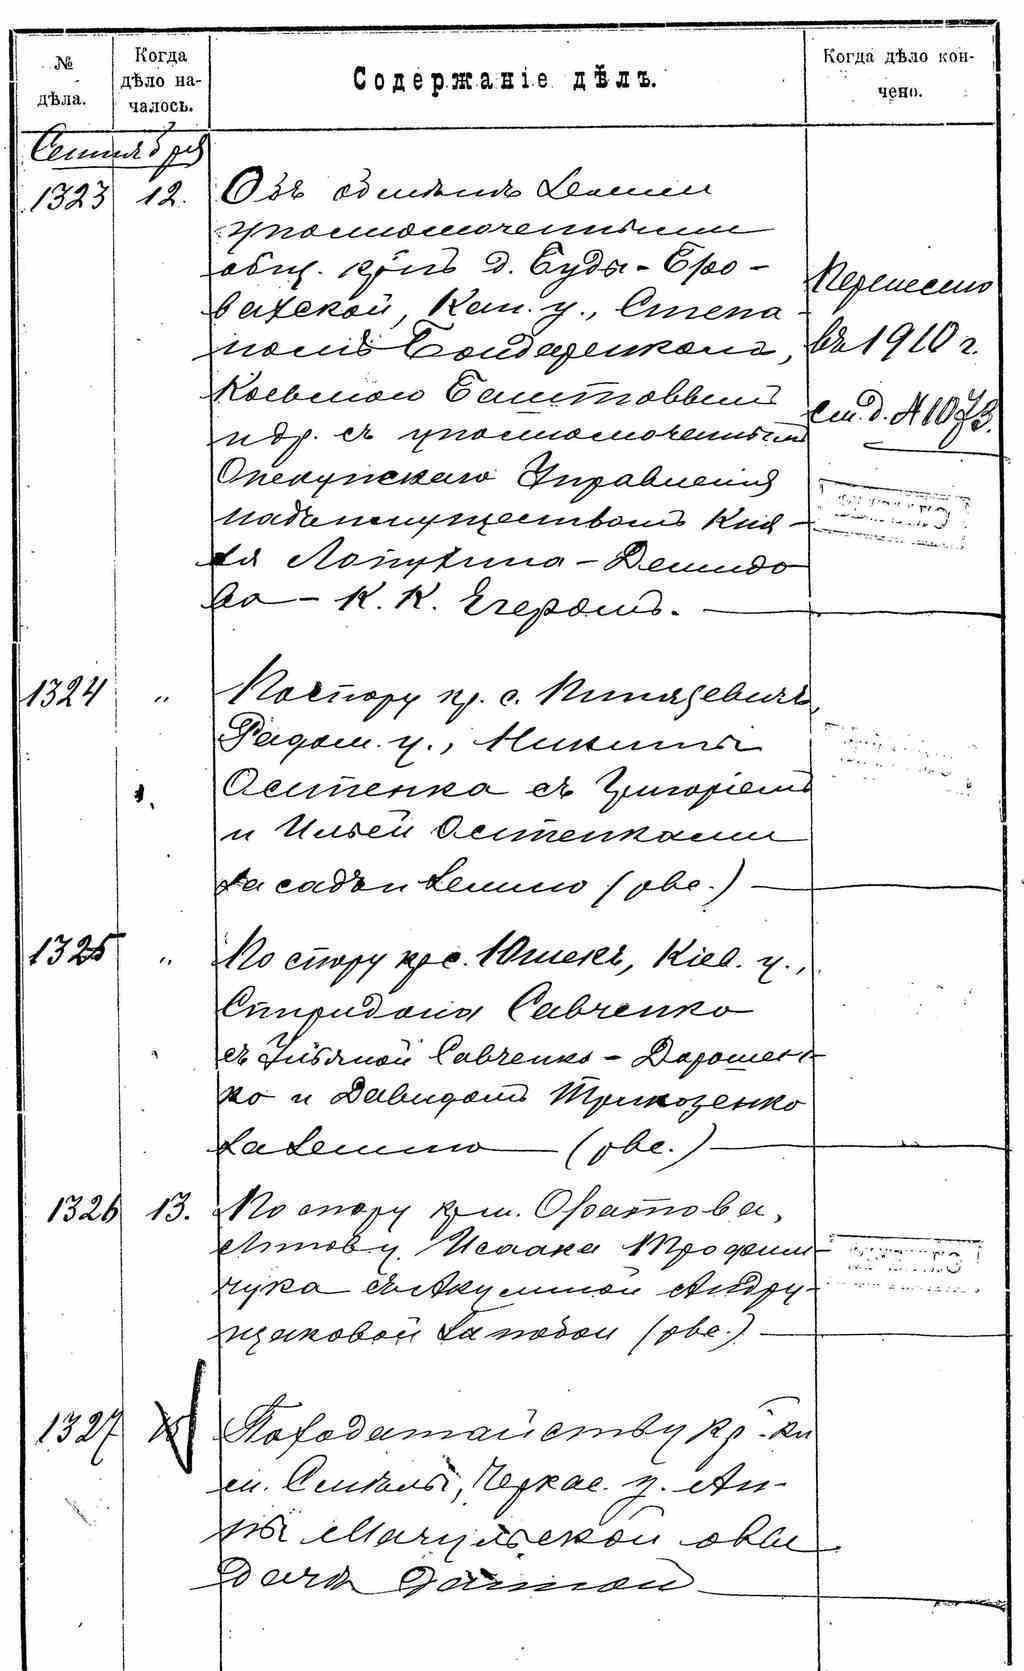 № дѣла.
Когда дѣло началось.
Содержаніе дѣлъ.
Когда дѣло кончено.
Сентября
1323 12. Объ обмѣнѣ земли
уполномоченными
общ. крѣпъ д. Буды-Бро-
вахской, Кан. у., Степа-
номъ Бондаренкомъ,
Козьмою Баштовымъ
и др. съ уполномоченнымъ
Опекунскаго Управленія
надъ имуществомъ Кня-
зя Лопухина-Демидо
ва - К. К. Егеромъ.
Перенесено
въ 1910 г.
см. д. № 1073.
1324 " По спору кр. с. Княжевичъ,
Радом. у., Никиты
Остенка съ Григоріемъ
и Ильей Остенками
за садъ и землю (рве.)
1325 " По спору кр с. Юшекъ, Кіев. у.,
Спиридона Савченко
съ Ульяной Савченко-Дорошен-
ко и Давидомъ Трикозенко
за землю (рве.)
1326 13. По спору кр м. Оратова,
Липов у. Исаака Трофим-
чука съ Акулиной Андру-
щаковой за побои (рве.)
1327 15 По ходатайству кр-ки
м. Смѣлы, Черкас. у. Ан-
ны Мачульской о вы
дачѣ данной